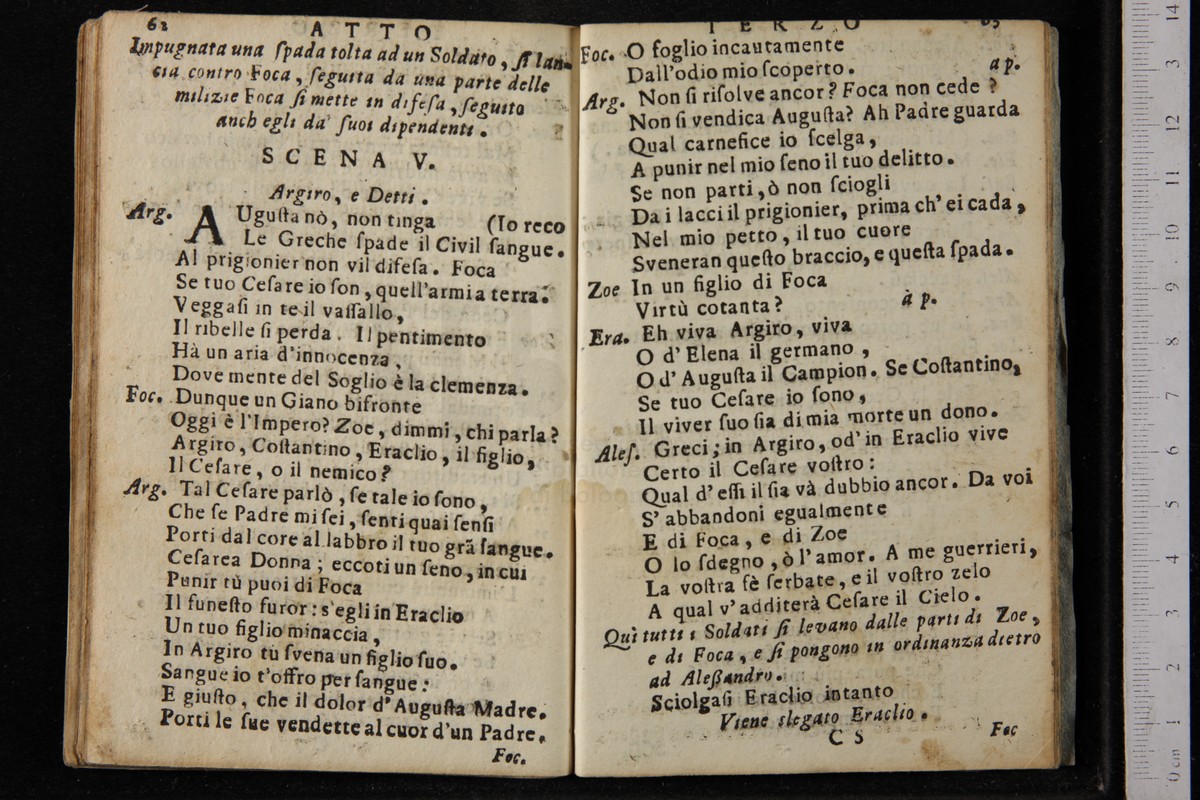 62
ATTO
Impugnata una ſpada tolta ad un Soldato, ſi lan-
cia contro Foca, ſeguita da una parte delle
milizie Foca ſi mette in difeſa, ſeguito
anch egli da' ſuoi dipendenti.
SCENA V.
Argiro, e Detti.
Arg. AUguſta nò, non tinga (Io reco
Le Greche ſpade il Civil ſangue.
Al prigionier non vil difeſa. Foca
Se tuo Ceſare io ſon, quell'armi a terra.
Veggaſi in te il vaſſallo,
Il ribelle ſi perda. Il pentimento
Hà un aria d'innocenza,
Dove mente del Soglio è la clemenza.
Foc. Dunque un Giano bifronte
Oggi è l'Impero? Zoe, dimmi, chi parla?
Argiro, Coſtantino, Eraclio, il figlio,
Il Ceſare, o il nemico?
Arg. Tal Ceſare parlò, ſe tale io ſono,
Che ſe Padre mi ſei, ſenti quai ſenſi
Porti dal core al labbro il tuo grã ſangue.
Ceſarea Donna; eccoti un ſeno, in cui
Punir tù puoi di Foca
Il funeſto furor: s'egli in Eraclio
Un tuo figlio minaccia,
In Argiro tù ſvena un figlio ſuo.
Sangue io t'offro per ſangue:
E giuſto, che il dolor d'Auguſta Madre.
Porti le ſue vendette al cuor d'un Padre.
Foc.
TERZO
Foc. O foglio incautamente
Dall'odio mio ſcoperto. a p.
Arg. Non ſi riſolve ancor? Foca non cede?
Non ſi vendica Auguſta? Ah Padre guarda
Qual carnefice io ſcelga,
A punir nel mio ſeno il tuo delitto.
Se non parti, ò non ſciogli
Da i lacci il prigionier, prima ch' ei cada,
Nel mio petto, il tuo cuore
Sveneran queſto braccio, e queſta ſpada.
Zoe In un figlio di Foca
Virtù cotanta? à p.
Era. Eh viva Argiro, viva
O d' Elena il germano,
O d' Auguſta il Campion. Se Coſtantino,
Se tuo Ceſare io ſono,
Il viver ſuo ſia di mia morte un dono.
Aleſ. Greci; in Argiro, od' in Eraclio vive
Certo il Ceſare voſtro:
Qual d' eſſi il ſia và dubbio ancor. Da voi
S' abbandoni egualmente
E di Foca, e di Zoe
O lo ſdegno, ò l'amor. A me guerrieri,
La voſtra fè ſerbate, e il voſtro zelo
A qual v' additerà Ceſare il Cielo.
Quì tutti i Soldati ſi levano dalle parti di Zoe,
e di Foca, e ſi pongono in ordinanza dietro
ad Aleſſandro.
Sciolgaſi Eraclio intanto
Viene slegato Eraclio.
C 5
Foc